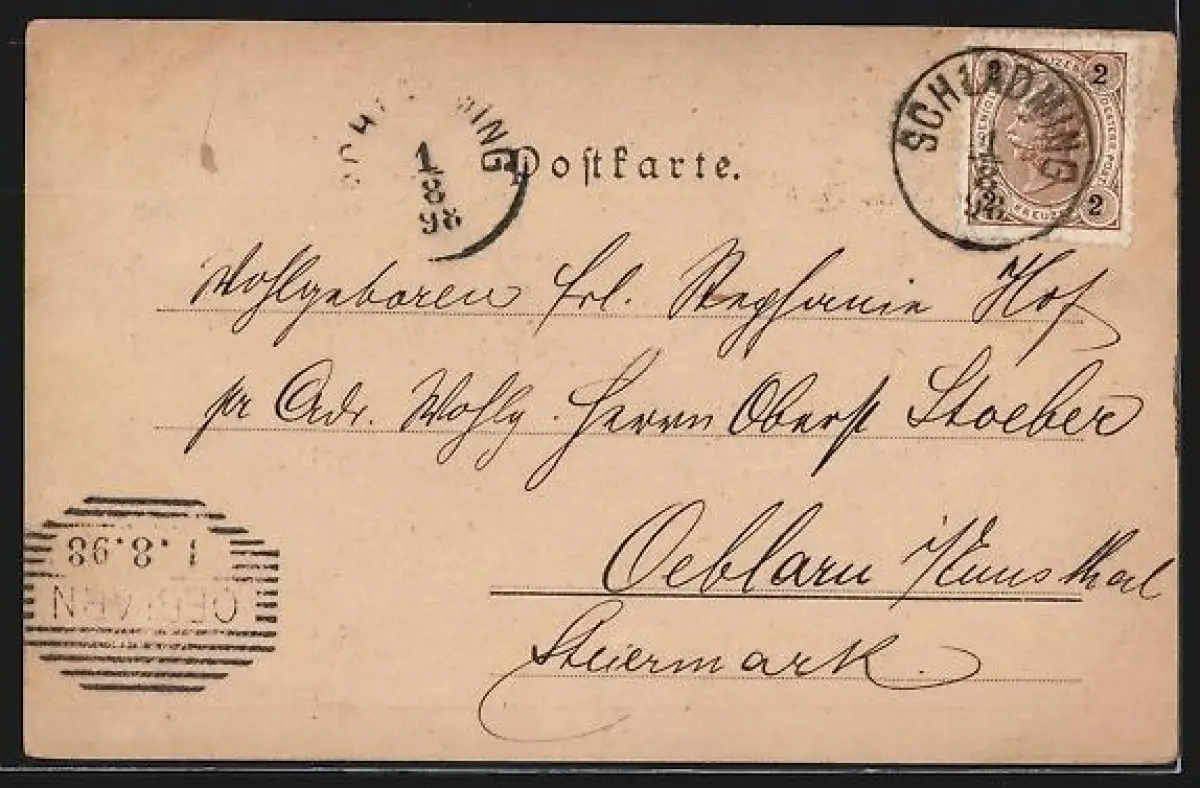 SCHLADMING
1
8
98
SCHLADMING
1
8
98
2 2
2 2
KREUZER
Postkarte.
Wohlgeboren Frl. Stephanie Hof
pr Adr. Wohlg. Herrn Oberst Stoeber
Oeblarn /Ennsthal
Steiermark.
1.8.98
OEBLARN